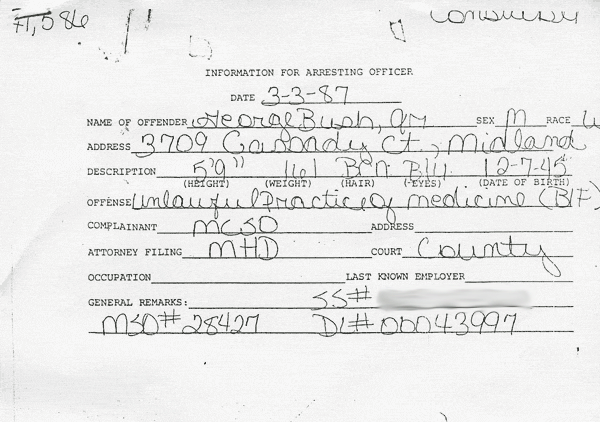 71,586
INFORMATION FOR ARRESTING OFFICER
DATE 3-3-87
NAME OF OFFENDER George Bush, Jr SEX M RACE W
ADDRESS 3709 Ct, Midland
DESCRIPTION 5'9" 161 Bln Blu 12-7-45
(HEIGHT) (WEIGHT) (HAIR) (EYES) (DATE OF BIRTH)
OFFENSE Unlawful Practice of medicine (B/F)
COMPLAINANT MCSO ADDRESS
ATTORNEY FILING MHD COURT County
OCCUPATION LAST KNOWN EMPLOYER
GENERAL REMARKS: SS#
MSO# 28427 DL# 00043997